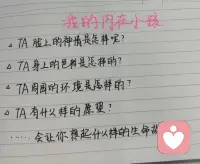 我的内在小孩
△ TA 脸上的神情是怎样呢?
△ TA 身上的色彩是怎样的?
△ TA 周围的环境是怎样的?
△ TA 有什么样的愿望?
…… 会让你想起什么样的生命故